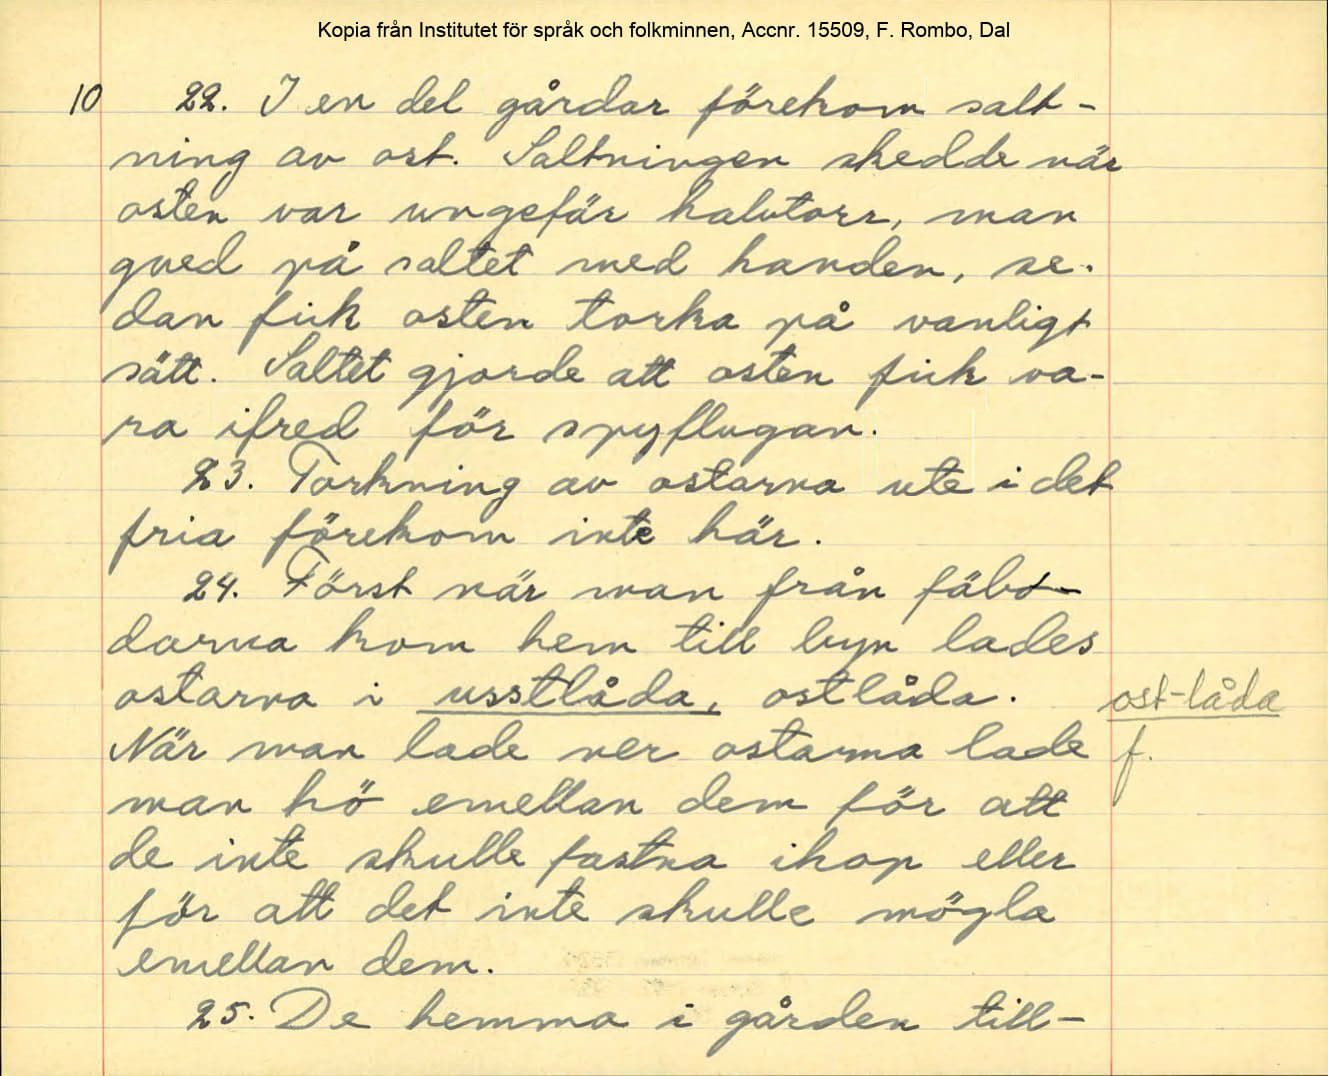 Kopia från Institutet för språk och folkminnen, Accnr. 15509, F. Rombo, Dal
10 22. I en del gårdar förekom salt-
ning av ost. Saltningen skedde när
osten var ungefär halvtorr, man
gned på saltet med handen, se-
dan fick osten torka på vanligt
sätt. Saltet gjorde att osten fick va-
ra ifred för spyflugan.
23. Torkning av ostarna ute i det
fria förekom inte här.
24. Först när man från fäbo-
darna kom hem till byn lades
ostarna i usstlåda, ostlåda. ost-låda
När man lade ner ostarna lade f.
man hö emellan dem för att
de inte skulle fastna ihop eller
för att det inte skulle mögla
emellan dem.
25. De hemma i gården till-